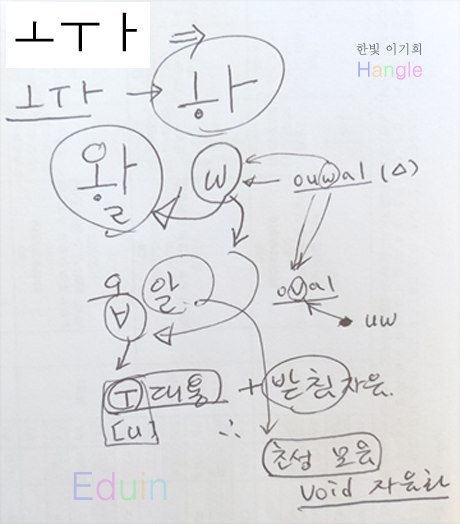 ㅗㅜㅏ
한빛 이기희
Hangle
ㅗㅜㅏ → ⇒
왈 w ouwal (△)
알 oual
uw
ㅜ 대통 + 받침 자음.
[u] ∴
초성 모음
void 자음화
Eduin